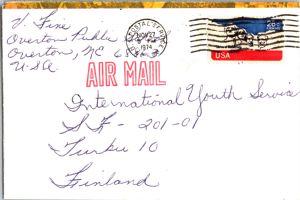 V. Fine
Overton Public
Overton, NC 68
USA
U.S. POSTAL SERVICE
1974
USA
AIR MAIL
International Youth Service
SF - 201-01
Turku 10
Finland